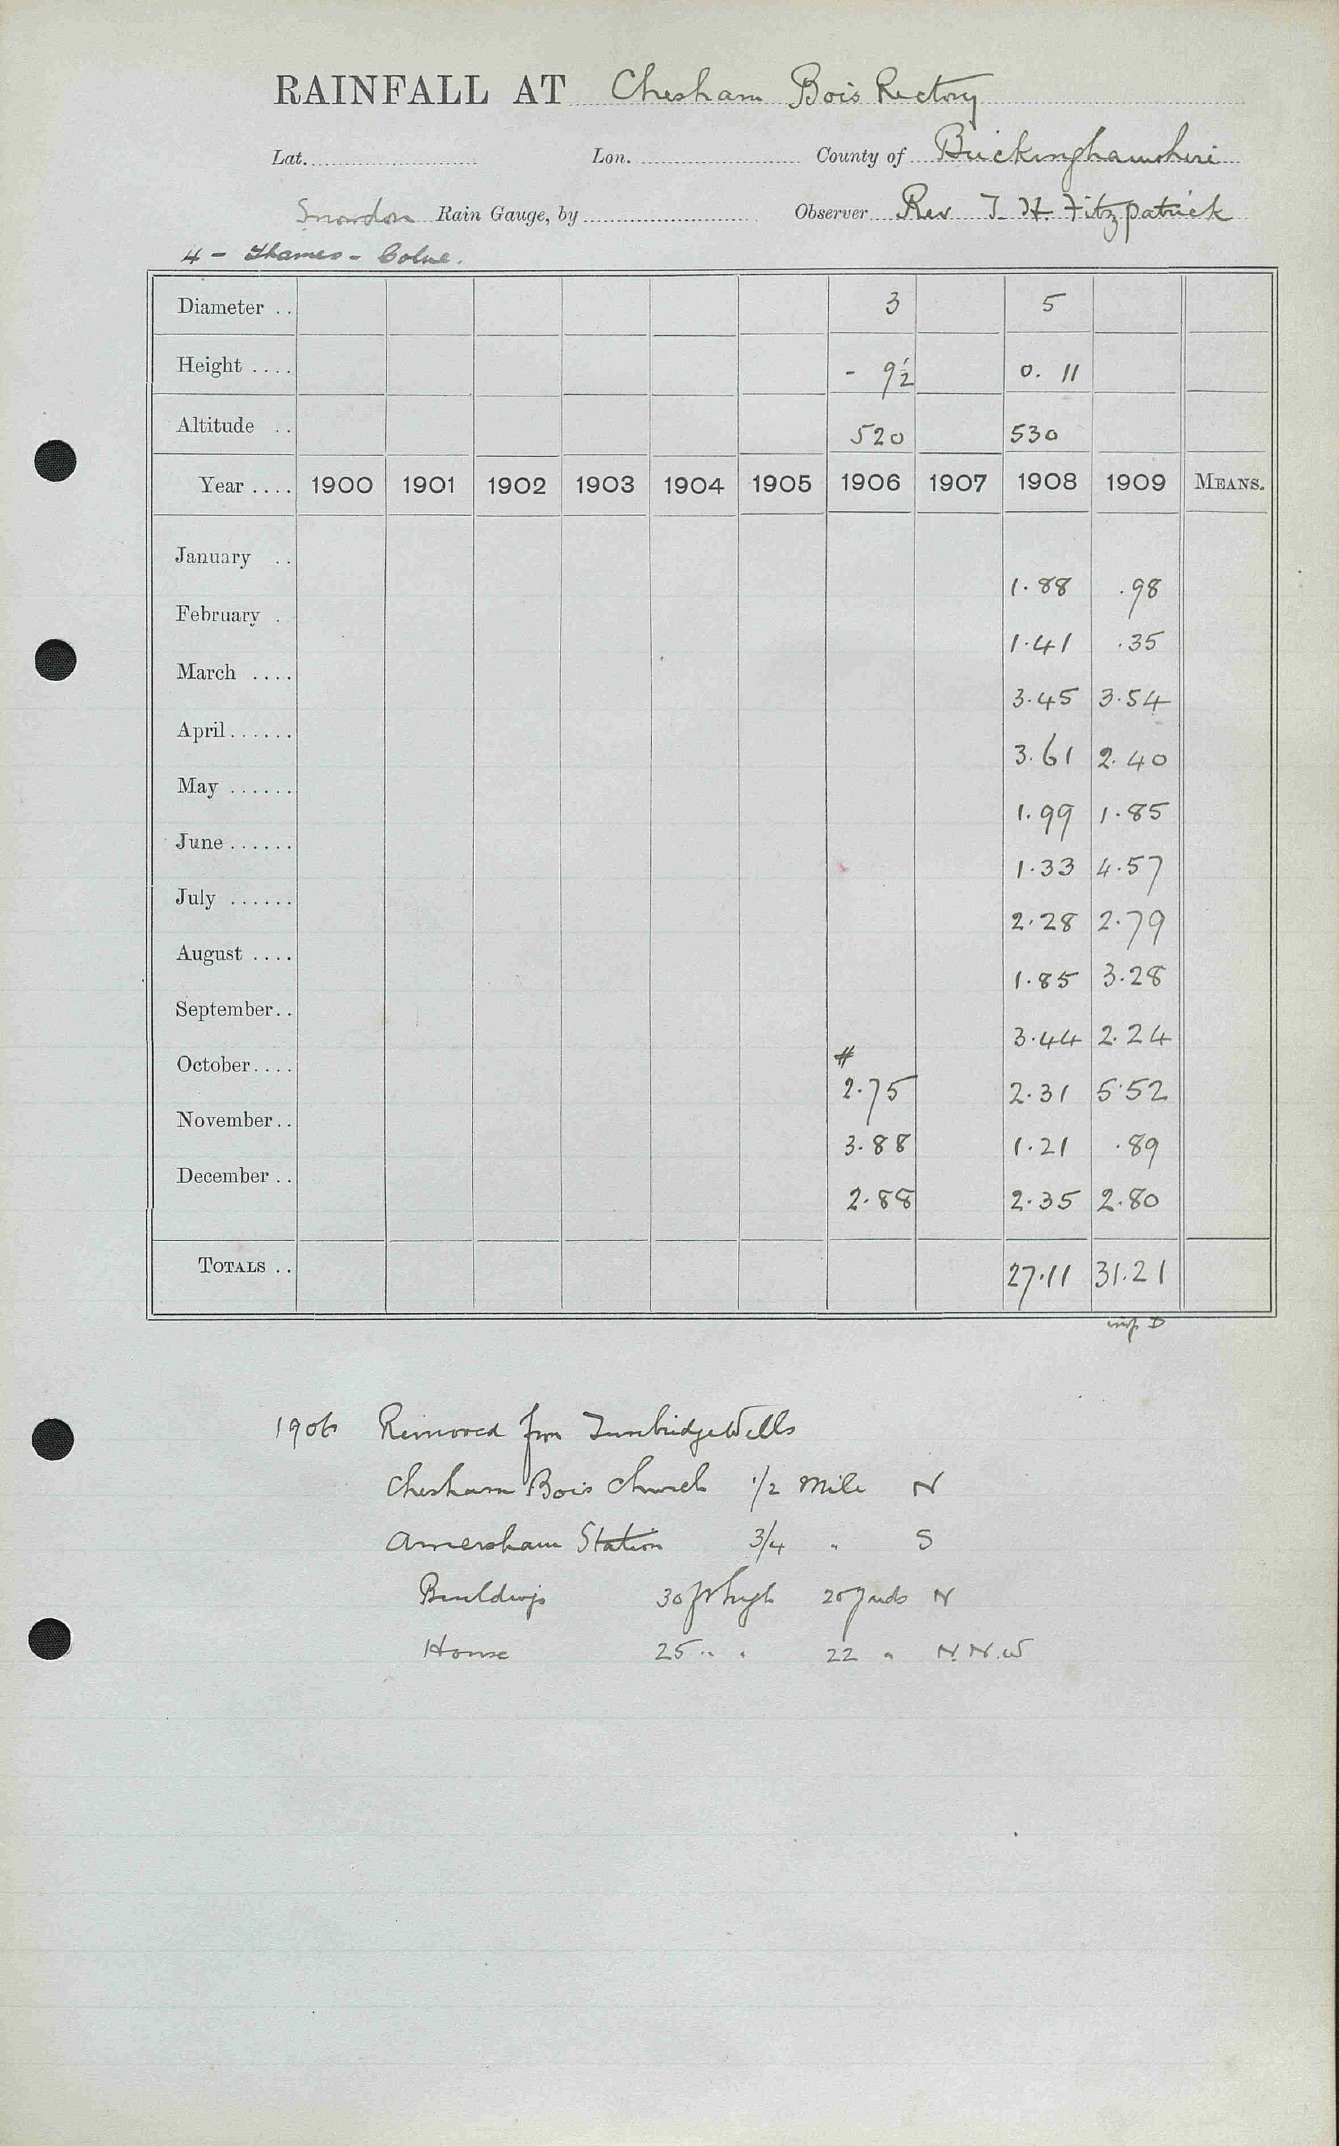 RAINFALL AT Chesham Bois Rectory
Lat. Lon. County of Buckinghamshire
Snowdon Rain Gauge, by Observer Rev T. H. Fitzpatrick
4 - Thames - Colne.
Diameter .. 3 5
Height .... - 9½ 0. 11
Altitude .. 520 530
Year .... 1900 1901 1902 1903 1904 1905 1906 1907 1908 1909 MEANS.
January ..
1.88 .98
February .
1.41 .35
March ....
3.45 3.54
April......
3.61 2.40
May ......
1.99 1.85
June......
1.33 4.57
July ......
2.28 2.79
August ....
1.85 3.28
September..
3.44 2.24
#
October....
2.75 2.31 5.52
November..
3.88 1.21 .89
December ..
2.88 2.35 2.80
TOTALS .. 27.11 31.21
1906 Removed from Tunbridge Wells
Chesham Bois Church 1/2 Mile N
Amersham Station 3/4 " S
Buildings 30 ft high 20 yards N
House 25 " " 22 " N.N.W